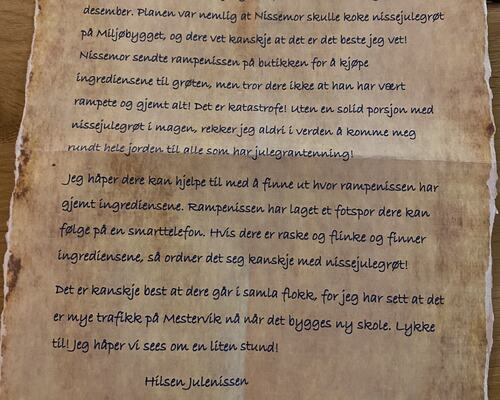 desember. Planen var nemlig at Nissemor skulle koke nissejulegrøt
på Miljøbygget, og dere vet kanskje at det er det beste jeg vet!
Nissemor sendte rampenissen på butikken for å kjøpe
ingrediensene til grøten, men tror dere ikke at han har vært
rampete og gjemt alt! Det er katastrofe! Uten en solid porsjon med
nissejulegrøt i magen, rekker jeg aldri i verden å komme meg
rundt hele jorden til alle som har julegrantenning!
Jeg håper dere kan hjelpe til med å finne ut hvor rampenissen har
gjemt ingrediensene. Rampenissen har laget et fotspor dere kan
følge på en smarttelefon. Hvis dere er raske og flinke og finner
ingrediensene, så ordner det seg kanskje med nissejulegrøt!
Det er kanskje best at dere går i samla flokk, for jeg har sett at det
er mye trafikk på Mestervik nå når det bygges ny skole. Lykke
til! Jeg håper vi sees om en liten stund!
Hilsen Julenissen